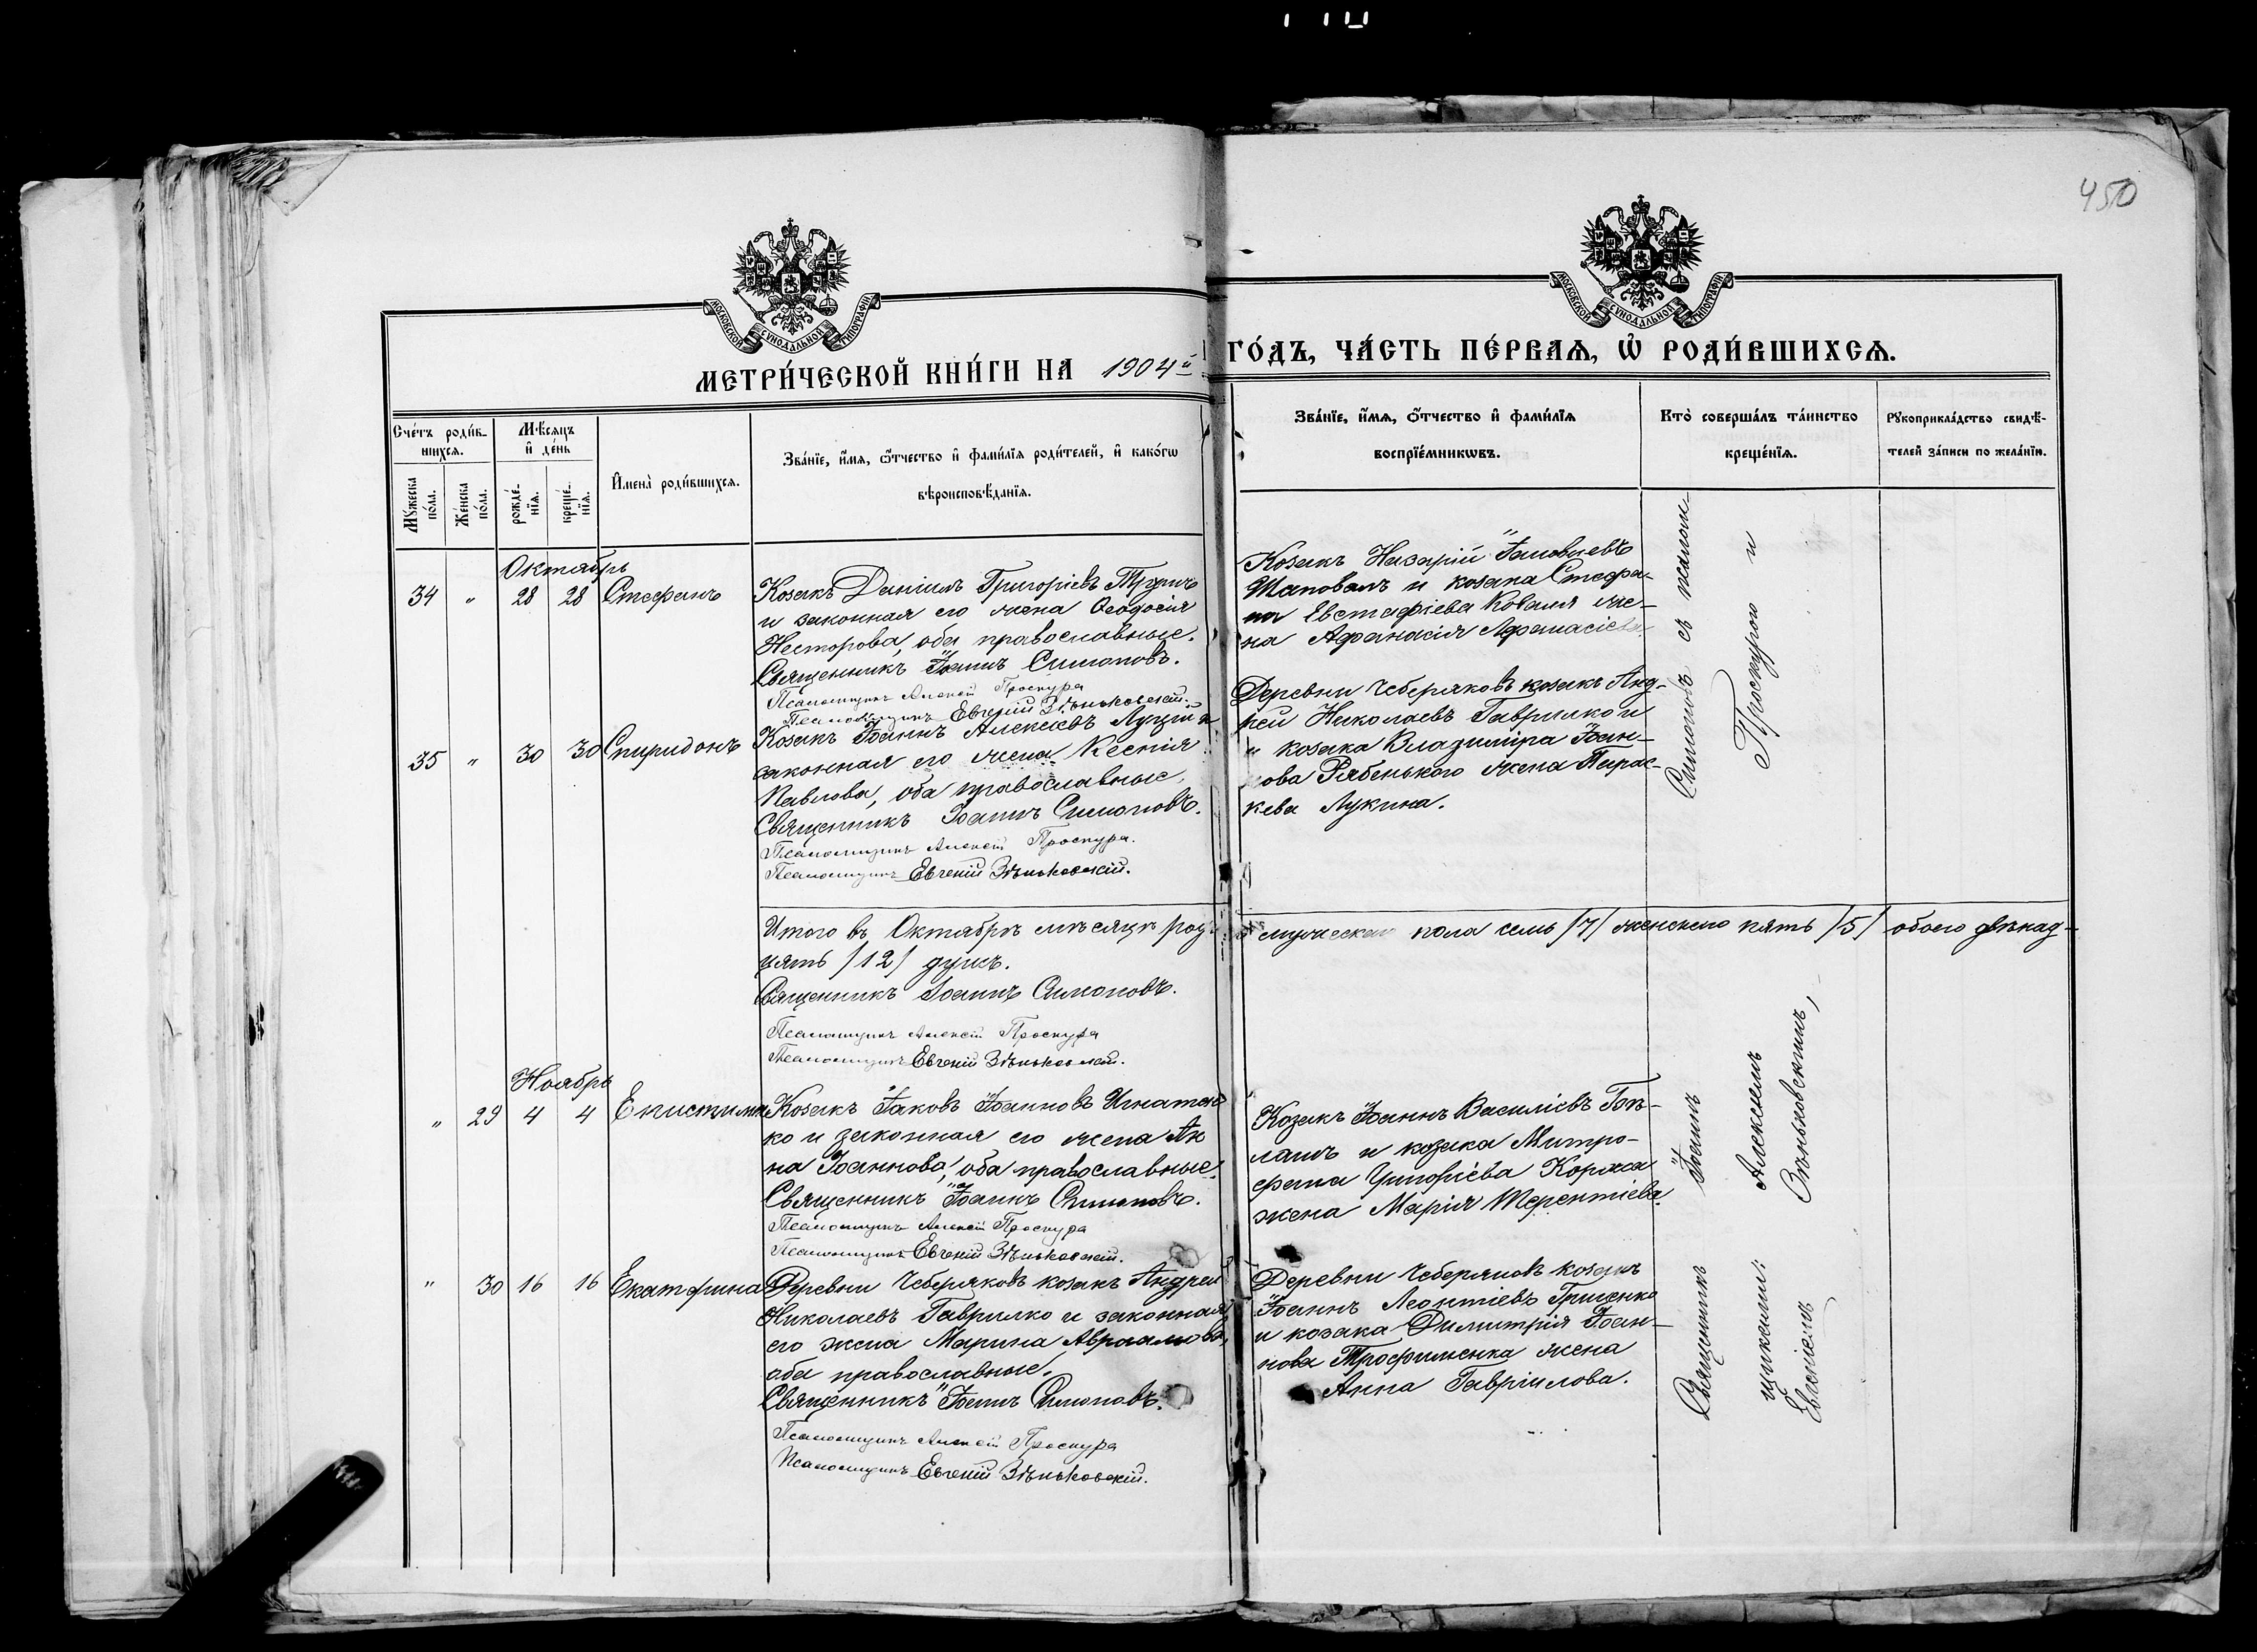 450
МОСКОВСКОЙ СѴНОДАЛЬНОЙ ТИПОГРАФІИ
МОСКОВСКОЙ СѴНОДАЛЬНОЙ ТИПОГРАФІИ
МЕТРИ́ЧЕСКОЙ КНИ́ГИ НА 1904й ГО́ДЪ, ЧА́СТЬ ПЕ́РВАѦ, Ѡ҆ РОДИ́ВШИХСѦ.
Сче́тъ роди́в-
шихсѧ.
Мꙋ́жеска по́ла.
Же́нска по́ла.
Мѣ́сѧцъ и҆ де́нь
рожде́-
нїѧ.
креще́-
нїѧ.
И҆мена̀ роди́вшихсѧ.
Зва́нїе, и҆́мѧ, ѻ҆́тчество и҆ фами́лїѧ роди́телей, и҆ како́гѡ
вѣроисповѣ́данїѧ.
Зва́нїе, и҆́мѧ, ѻ҆́тчество и҆ фами́лїѧ
воспрїе́мникѡвъ.
Кто̀ соверша́лъ та́инство
креще́нїѧ.
Рꙋкоприкла́дство свидѣ́-
телей за́писи по жела́нїю.
Октябрь
34 " 28 28 Стефанъ
Козакъ Даніилъ Григоріевъ
и законная его жена Ѳеодосія
Несторова, оба православные.
Священникъ Іоаннъ Симоновъ.
Псаломщикъ Алексій Проскура
Псаломщикъ Евгеній Зѣньковскій.
Козакъ Назарій
Шаповалъ и козака Стефа-
на Евстафіева Коваля же-
на Афанасія Афанасіева.
35 " 30 30 Спиридонъ
Козакъ Іоаннъ Алексіевъ Луцій и
законная его жена Ксенія
Павлова, оба православные.
Священникъ Іоаннъ Симоновъ.
Псаломщикъ Алексій Проскура.
Псаломщикъ Евгеній Зѣньковскій.
Деревни Чеберяковъ козакъ Анд-
рей Николаевъ Гаврилко и
" козака Владиміра Іоан-
нова Рябенького жена Парас-
кева Лукина.
Итого въ Октябрѣ мѣсяцѣ род. мужескаго пола семь /7/ женскаго пять /5/ обоего двѣнад-
цять /12/ душъ.
Священникъ Іоаннъ Симоновъ.
Псаломщикъ Алексій Проскура
Псаломщикъ Евгеній Зѣньковскій.
Ноябрь
" 29 4 4 Епистимія
Козакъ Іаковъ Іоанновъ Игнатен-
ко и законная его жена Ан
на Іоаннова, оба православные.
Священникъ Іоаннъ Симоновъ.
Псаломщикъ Алексій Проскура
Псаломщикъ Евгеній Зѣньковскій.
Козакъ Іоаннъ Василіевъ
и козака Митро-
фана Григоріева Коржа
жена Марія Терентіева.
" 30 16 16 Екатерина
Деревни Чеберяковъ козакъ Андрей
Николаевъ Гаврилко и законная
его жена Марина Авраамова,
оба православные.
Священникъ Іоаннъ Симоновъ.
Псаломщикъ Алексій Проскура
Псаломщикъ Евгеній Зѣньковскій.
Деревни Чеберяковъ козакъ
Іоаннъ Леонтіевъ Гриценко
и козака Димитрія Іоан-
нова Трофименка жена
Анна Гавріилова.
Священникъ Іоаннъ Симоновъ съ псалом-
щиками: Алексіемъ Проскурою и
Евгеніемъ Зѣньковскимъ,